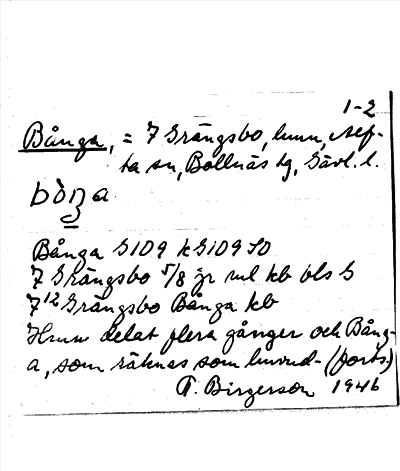 1-2
Bånga, = 7 Grängsbo, hmn, Alf-
ta sn, Bollnäs tg, Gävl. l.
Bånga G109 kG109 SO
7 Grängsbo 5/8 jr ml kb bls G
7¹² Grängsbo Bånga kb
Hmn delat flera gånger och Bång-
a, som räknas som huvud- (forts.)
T. Birgerson 1946